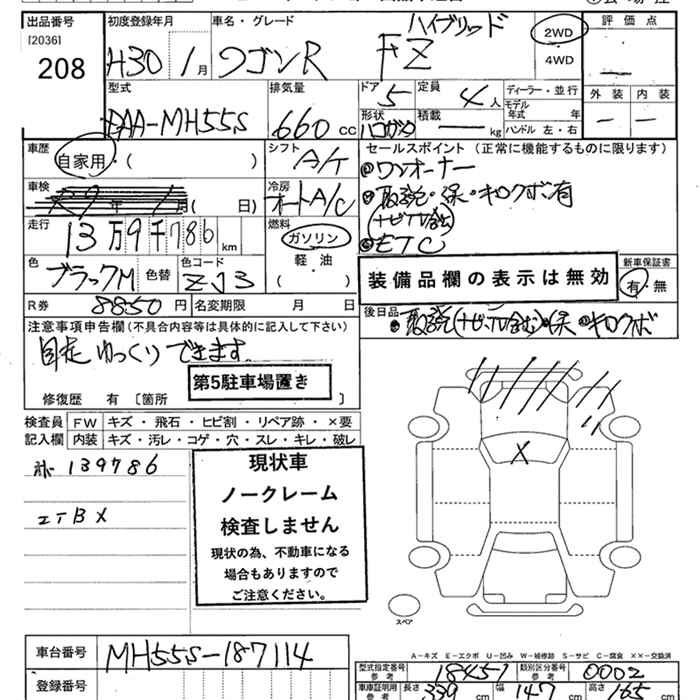 出品番号 初度登録年月 車名・グレード ハイブリッド 評価点
[2036]
208 H30 1月 ワゴンR FZ 2WD 4WD —
型式 排気量 ドア 定員 ディーラー・並行 外装 内装
DAA-MH55S 660cc 5 4人 モデル年式 年 — —
形状 ハコガタ 積載 — kg ハンドル 左・右
車歴 自家用・( ) シフト A/T
セールスポイント(正常に機能するものに限ります)
●ワンオーナー
車検 年 月( 日) 冷房 オートA/C
●取説・保・キロクボ有
(ナビTV含)
●ETC
走行 13万9千786km 燃料 ガソリン 軽油 ( )
色 ブラックM 色替 色コード ZJ3
装備品欄の表示は無効
新車保証書 有・無
R券 8850円 名変期限 月 日
後日品
●取説(ナビ,TV含む)・保 ●キロクボ
注意事項申告欄(不具合内容等は具体的に記入して下さい)
自走ゆっくりできます
第5駐車場置き
修復歴 有〔箇所 〕
検査員記入欄 FW キズ・飛石・ヒビ割・リペア跡・×要
内装 キズ・汚レ・コゲ・穴・スレ・キレ・破レ
139786
エアBX
現状車
ノークレーム
検査しません
現状の為、不動車になる
場合もありますので
ご注意ください。
X
スペア
A-キズ E-エクボ U-凹み W-補修跡 S-サビ C-腐食 ××-交換済
車台番号 MH55S-187114
型式指定番号 参考 18451 類別区分番号 参考 0002
登録番号
車庫証明用 参考 長さ 339cm 幅 147cm 高さ 165cm